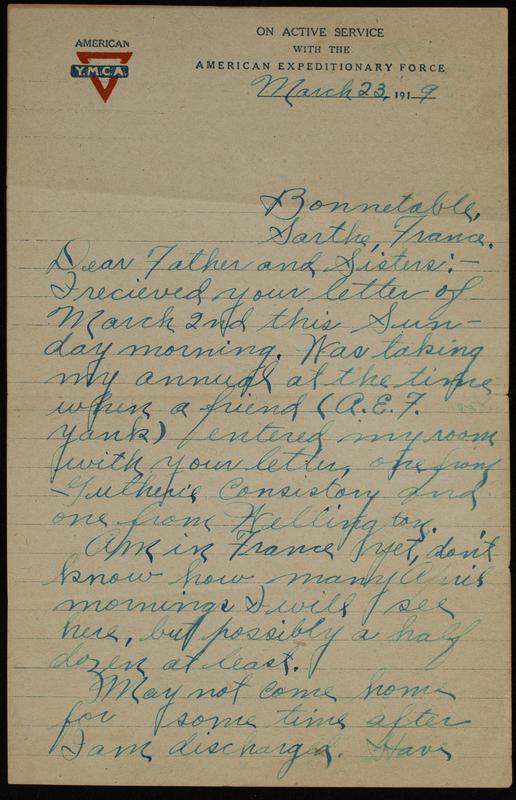 AMERICAN
Y.M.C.A.
ON ACTIVE SERVICE
WITH THE
AMERICAN EXPEDITIONARY FORCE
March 23, 1919
Bonnetable,
Sarthe, France.
Dear Father and Sisters:-
I recieved your letter of
March 2nd this Sun-
day morning. Was taking
my annual at the time
when a friend (A.E.F.
Yank) entered my room
with your letter, one from
Gutherie Consistory and
one from Wellington.
Am in France yet, don't
know how many April
mornings I will see
here, but possibly a half
dozen at least.
May not come home
for some time after
I am discharged. Have